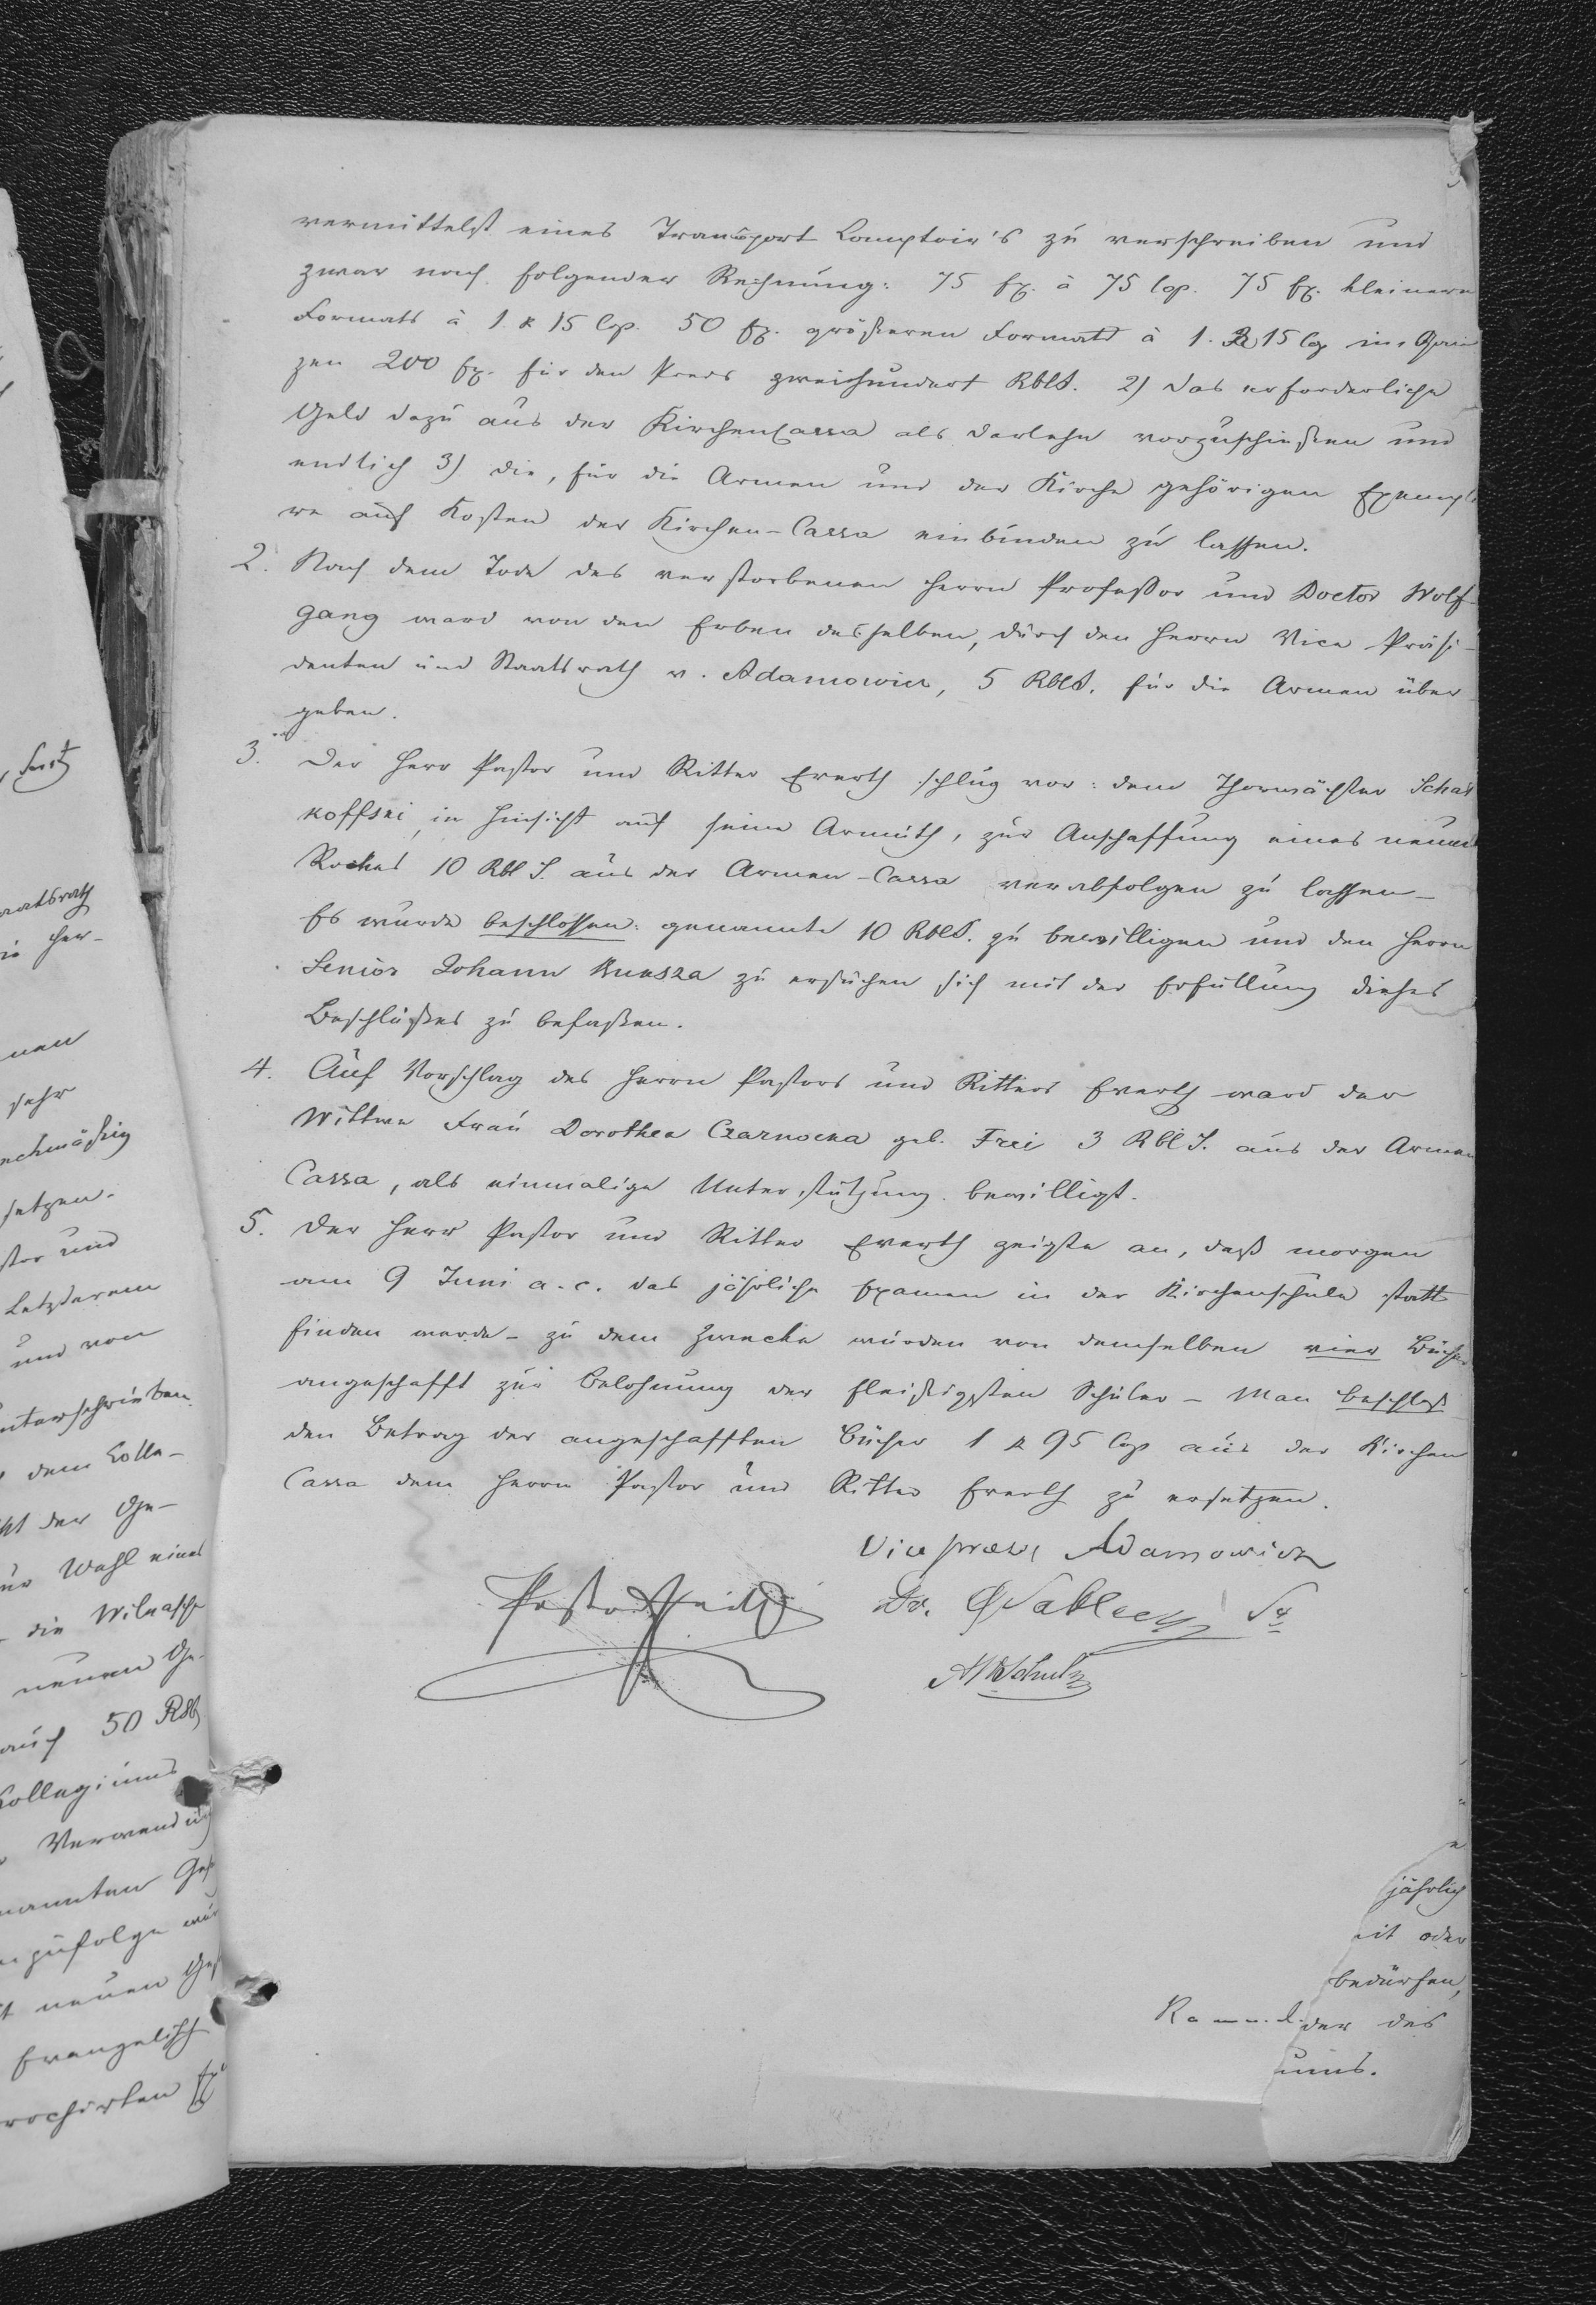 vermittelst eines Transport Comptoir's zu verschreiben und
zwar nach folgender Rechnung: 75 Ex. à 75 Cop. 75 Ex. kleinern
Formats à 1 R 15 Cop. 50 Ex. größeren Formats à 1. R 15 Cop im Gan
zen 200 Ex. für den Preis zweihundert RblS. 2) das erforderliche
Geld dazu aus der KirchenCassa als Darlehn vorzuschießen und
endlich 3) die, für die Armen und der Kirche gehörigen Exempla
re auf Kosten der Kirchen-Cassa einbinden zu lassen.
2. Nach dem Tode des verstorbenen Herrn Professor und Doctor Wolf-
gang ward von den Erben desselben, durch den Herrn Vice Präsi-
denten und Staatsrath v. Adamowicz, 5 RblS. für die Armen über
geben.
3. Der Herr Pastor und Ritter Everth schlug vor: dem Thorwächter Schat
koffski in Hinsicht auf seine Armuth, zur Anschaffung eines neuen
Rockes 10 Rbl S. aus der Armen-Cassa verabfolgen zu lassen -
Es wurde beschlossen: genannte 10 RblS. zu bewilligen und den Herrn
Senior Johann Kuksza zu ersuchen sich mit der Erfüllung dieses
Beschlußes zu befaßen.
4. Auf Vorschlag des Herrn Pastors und Ritters Everth ward der
Wittwe Frau Dorothea Czarnocka geb. Frei 3 Rbl S. aus der Armen
Cassa, als einmalige Unterstützung bewilligt.
5. Der Herr Pastor und Ritter Everth zeigte an, daß morgen
am 9 Juni a. c. das jährliche Examen in der Kirchenschule statt
finden werde - zu dem Zwecke wurden von demselben vier Bücher
angeschafft zur Belohnung der fleißigsten Schüler - Man beschloß
den Betrag der angeschafften Bücher 1 R 95 Cop aus der Kirchen
Cassa dem Herrn Pastor und Ritter Everth zu ersetzen.
Vice praeses Adamowicz
Pastor Everth
Dr.
Schultz
jährlich
oder
bedürfen,
der des